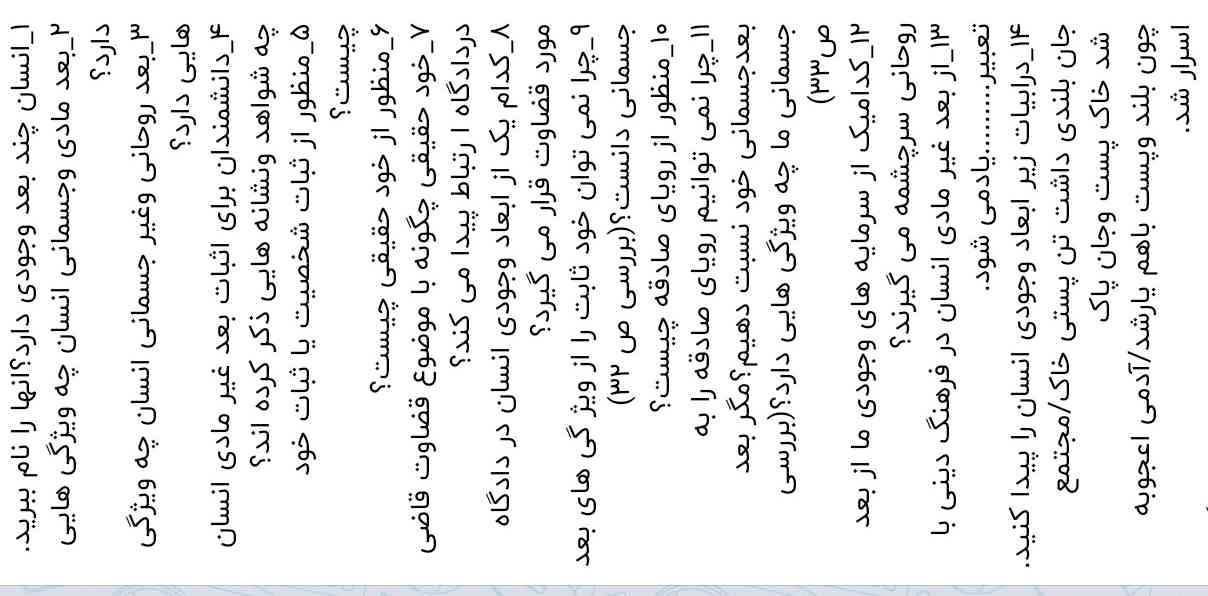 ۱_انسان چند بعد وجودی دارد؟انها را نام ببرید.
۲_بعد مادی وجسمانی انسان چه ویژگی هایی
دارد؟
۳_بعد روحانی وغیر جسمانی انسان چه ویژگی
هایی دارد؟
۴_دانشمندان برای اثبات بعد غیر مادی انسان
چه شواهد ونشانه هایی ذکر کرده اند؟
۵_منظور از ثبات شخصیت یا ثبات خود
چیست؟
۶_منظور از خود حقیقی چیست؟
۷_خود حقیقی چگونه با موضوع قضاوت قاضی
دردادگاه ارتباط پیدا می کند؟
۸_کدام یک از ابعاد وجودی انسان در دادگاه
مورد قضاوت قرار می گیرد؟
۹_چرا نمی توان خود ثابت را از ویژ گی های بعد
جسمانی دانست؟(بررسی ص ۳۲)
۱۰_منظور از رویای صادقه چیست؟
۱۱_چرا نمی توانیم رویای صادقه را به
بعدجسمانی خود نسبت دهیم؟مگر بعد
جسمانی ما چه ویژگی هایی دارد؟(بررسی
ص۳۳)
۱۲_کدامیک از سرمایه های وجودی ما از بعد
روحانی سرچشمه می گیرند؟
۱۳_از بعد غیر مادی انسان در فرهنگ دینی با
تعبیر..........یادمی شود.
۱۴_درابیات زیر ابعاد وجودی انسان را پیدا کنید.
جان بلندی داشت تن پستی خاک/مجتمع
شد خاک پست وجان پاک
چون بلند وپست باهم یارشد/آدمی اعجوبه
اسرار شد.